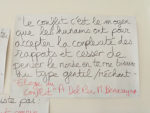 "Le conflit c'est le moyen
que les humains ont pour
accepter la complexité des
rapports et cesser de
penser le monde en
du type gentil/méchant"
Eloge du
conflit" A. Del Rey, M. Benasayag
par